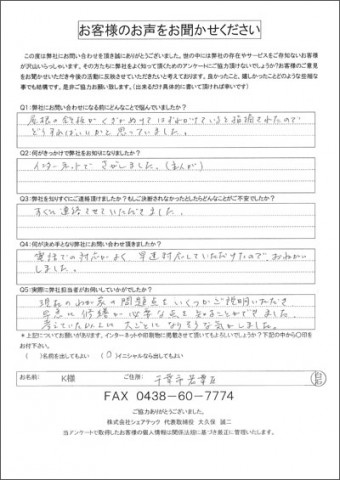 お客様のお声をお聞かせください
この度は弊社にお問い合わせを頂き誠にありがとうございました。世の中には弊社の存在やサービスをご存知ないお客様
が沢山いらっしゃいます。その方たちに弊社をよく知って頂くためのアンケートにご協力頂けないでしょうか?お客様のご意見
をお聞かせいただき今後の活動に反映させていただきたいと考えております。良かったこと、嬉しかったことどのような些細な
事でも結構です。是非ご協力お願い致します。(出来るだけ具体的に書いて頂ければ幸いです)
Q1:弊社にお問い合わせになる前にどんなことで悩んでいましたか?
屋根の鉄板がくぎがぬけてはずれかけていると指摘されたので
どうすればいいかと思っていました。
Q2:何がきっかけで弊社をお知りになりましたか?
インターネットでさがしました。
Q3:弊社を知りすぐにご連絡頂けましたか?もしご決断されなかったとしたらどんなことがご不安でしたか?
すぐに連絡させていただきました。
Q4:何が決め手となり弊社にお問い合わせ頂きましたか?
電話での対応がよく、早速対応していただけたので、おねがい
しました。
Q5:実際に弊社担当者がお伺いしていかがでしたか?
現在のわが家の問題点をいくつかご説明いただき
早急に修繕が必要な点を知ることができました。
考えていた以上に大ごとになりそうな気がしました。
*上記についてお願いがあります。インターネットや印刷物に掲載させて頂いてもよろしいでしょうか?下記の中から○印を
お付下さい。
( )名前を出してもよい (○)イニシャルなら出してもよい
お名前: K様 ご住所: 千葉市若葉区
FAX 0438-60-7774
ご協力ありがとうございました。
株式会社シェアテック 代表取締役 大久保 誠二
当アンケートで取得したお客様の個人情報は関係法規に基づき厳正に管理いたします。